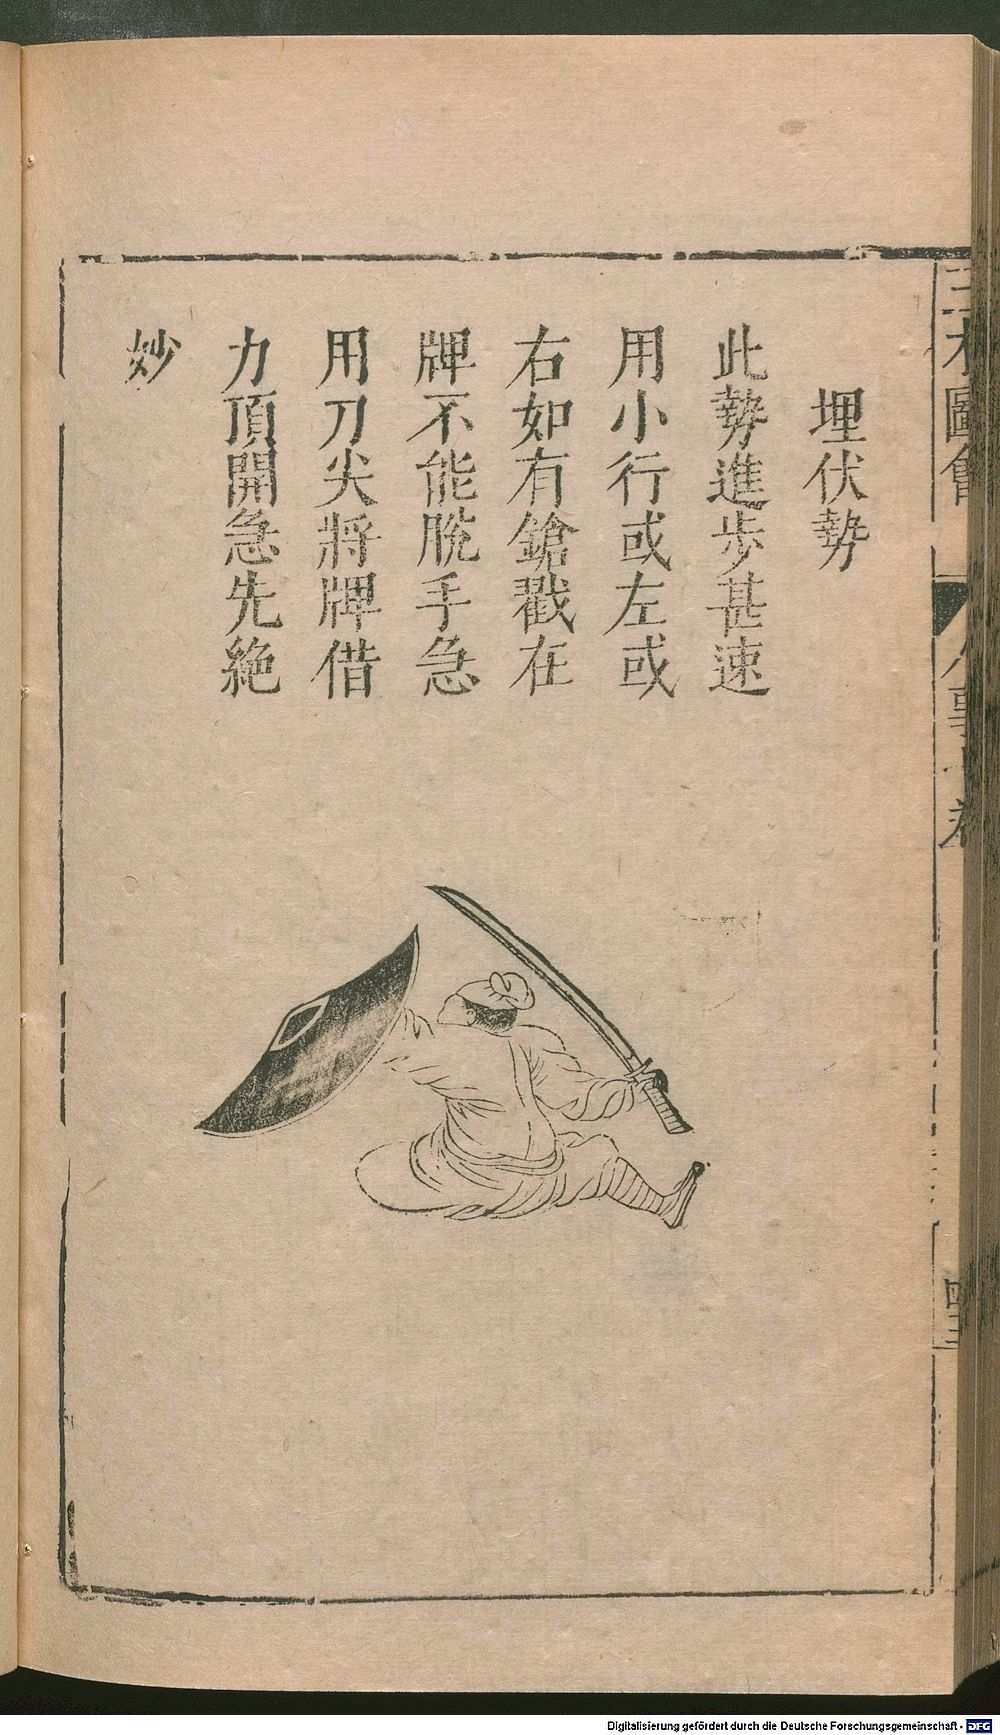 三才圖會
人事七卷
埋伏勢
此勢進步甚速
用小行或左或
右如有鎗戳在
牌不能脫手急
用刀尖將牌借
力頂開急先絶
妙
Digitalisierung gefördert durch die Deutsche Forschungsgemeinschaft - DFG